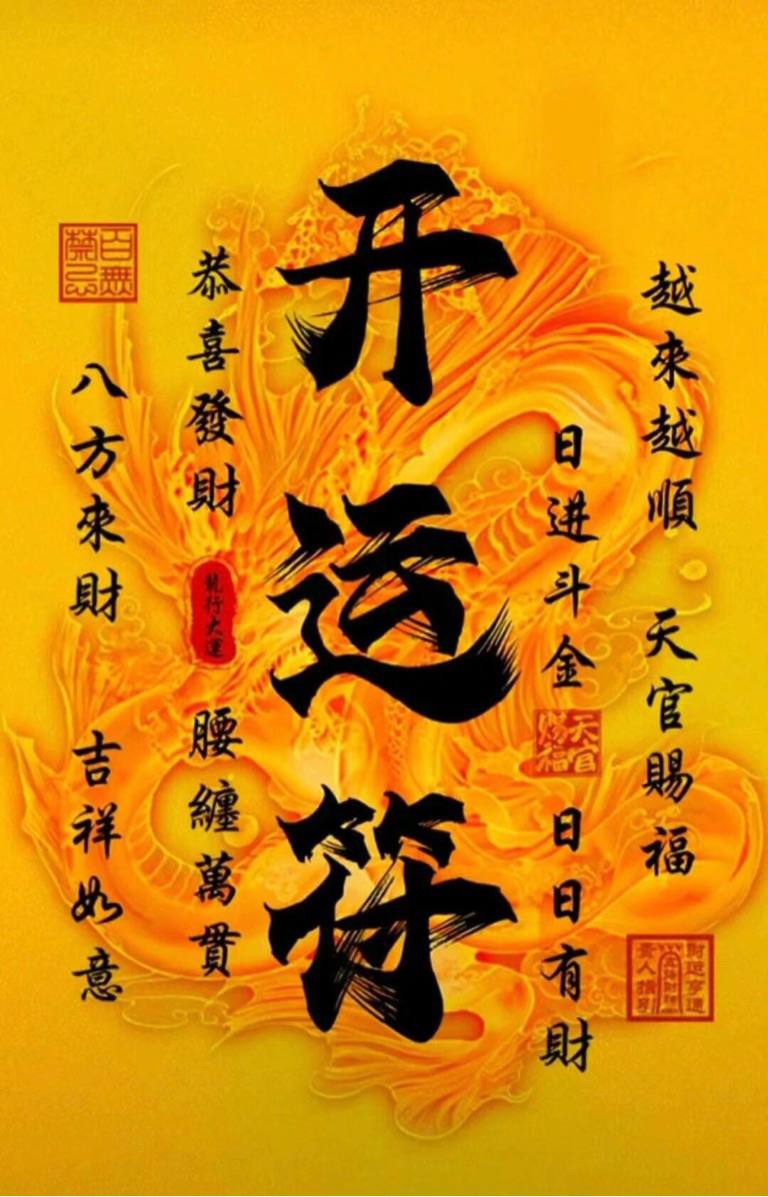 越來越順 天官賜福
日进斗金
天官賜福
日日有財
开运符
恭喜發財
龍行大運
腰纏萬貫
百無禁忌
八方來財 吉祥如意
財运亨通
貴人指引